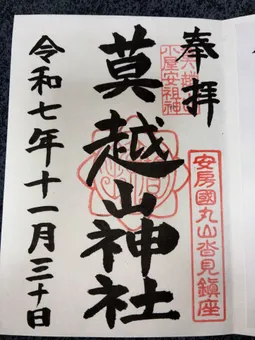 奉拝
安房國丸山沓見鎮座
小屋安祖神
莫越山神社
令和七年十一月三十日